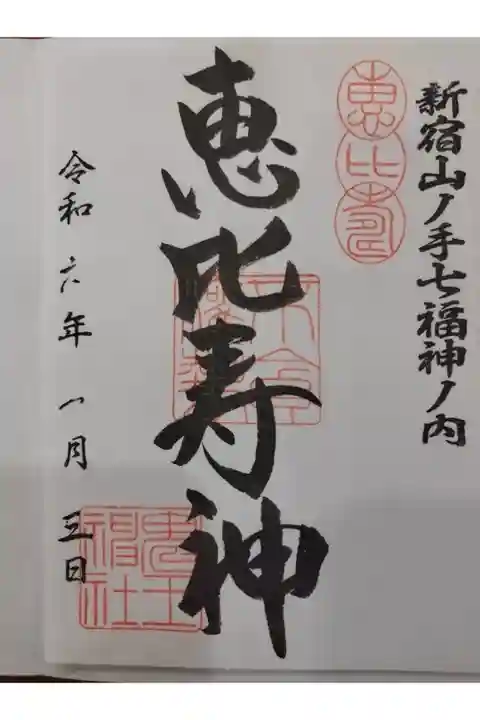 新宿山ノ手七福神ノ内
恵比寿
恵比寿神
令和六年一月三日
鬼王
福社